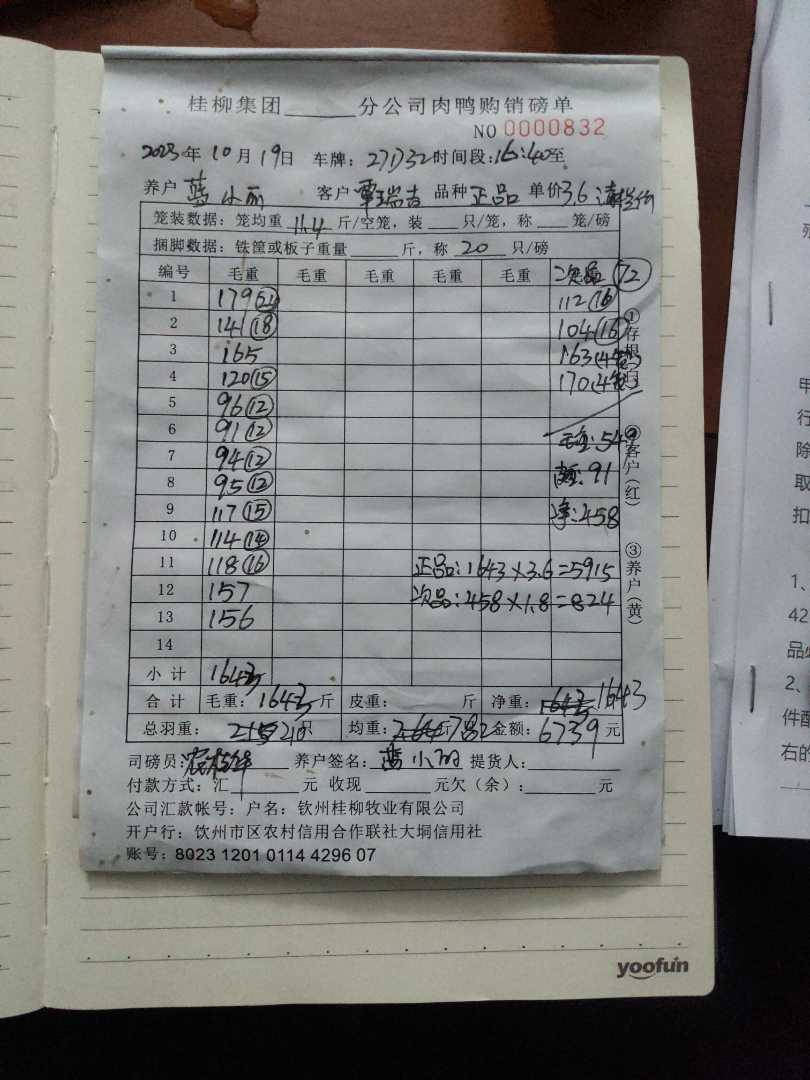 桂柳集团______分公司肉鸭购销磅单
NO 0000832
2023年10月19日 车牌:27D32时间段:16:40至
养户 蓝小丽 客户 覃瑞吉 品种 正品 单价3.6
笼装数据:笼均重 11.4 斤/空笼,装___只/笼,称___笼/磅
捆脚数据:铁筐或板子重量_____斤,称 20 只/磅
编号 毛重 毛重 毛重 毛重 毛重 次品 72
1 179 112 16
2 141 18 104 16
3 165 163
4 120 15 170
5 96 12
6 91 12 毛重:549
7 94 12 91
8 95 12
9 117 15 净:458
10 114 14
11 118 16 正品:1643×3.6=5915
12 157 次品:458×1.8=824
13 156
14
小计 1643
合计 毛重:1643斤 皮重: 斤 净重:1643
总羽重: 210只 均重:7.82 金额:6739元
司磅员: 养户签名:蓝小丽 提货人:
付款方式:汇______元 收现______元欠(余):______元
公司汇款帐号:户名:钦州桂柳牧业有限公司
开户行:钦州市区农村信用合作联社大垌信用社
账号:8023 1201 0114 4296 07
①存根
②客户(红)
③养户(黄)
yoofun
甲
行
除
取
扣
1、
42
品必
2、
件配
右的